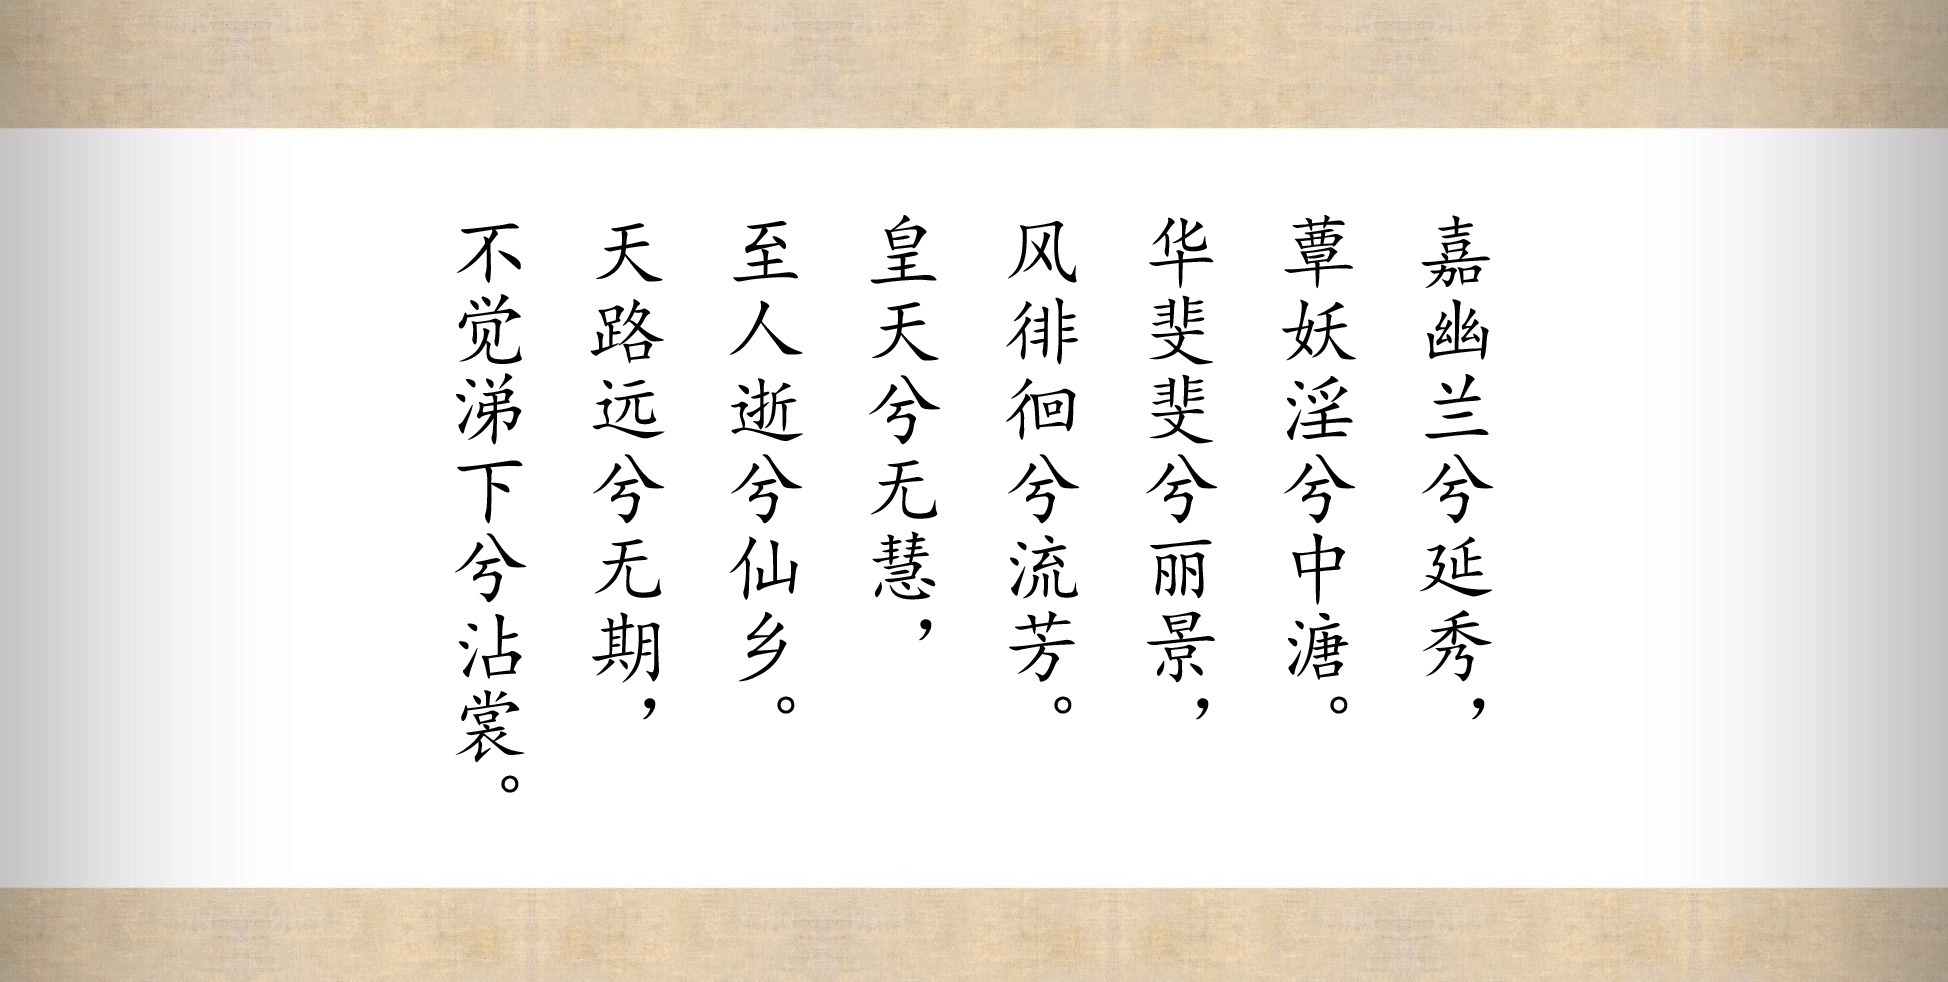 嘉幽兰兮延秀，
蕈妖淫兮中溏。
华斐斐兮丽景，
风徘徊兮流芳。
皇天兮无慧，
至人逝兮仙乡。
天路远兮无期，
不觉涕下兮沾裳。